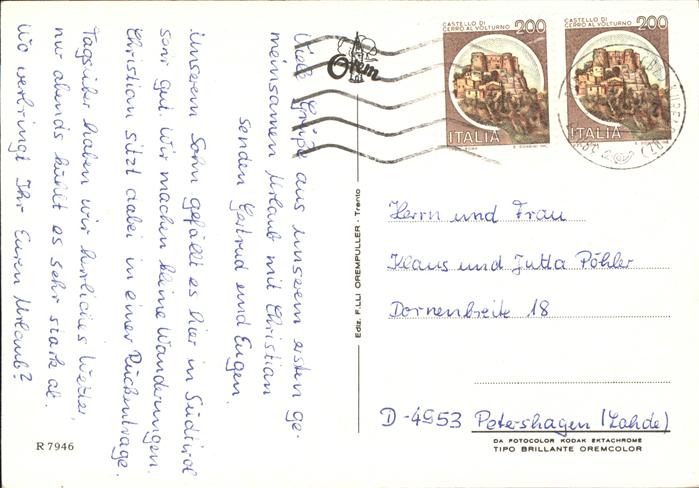 Viele Grüße aus unserem ersten ge-
meinsamen Urlaub mit Christian
senden Gertrud und Eugen.
Unserem Sohn gefällt es hier in Südtirol
sehr gut. Wir machen kleine Wanderungen.
Christian sitzt dabei in einer Rückentrage.
Tagsüber haben wir herrliches Wetter,
nur abends kühlt es sehr stark ab.
Wo verbringt Ihr Euren Urlaub?
R 7946
Orem
Ediz. F.LLI OREMPULLER - Trento
CASTELLO DI
CERRO AL VOLTURNO 200
ITALIA
CASTELLO DI
CERRO AL VOLTURNO 200
ITALIA
Herrn und Frau
Klaus und Jutta Pöhler
Dornenbreite 18
D-4953 Petershagen (Lahde)
DA FOTOCOLOR KODAK EKTACHROME
TIPO BRILLANTE OREMCOLOR